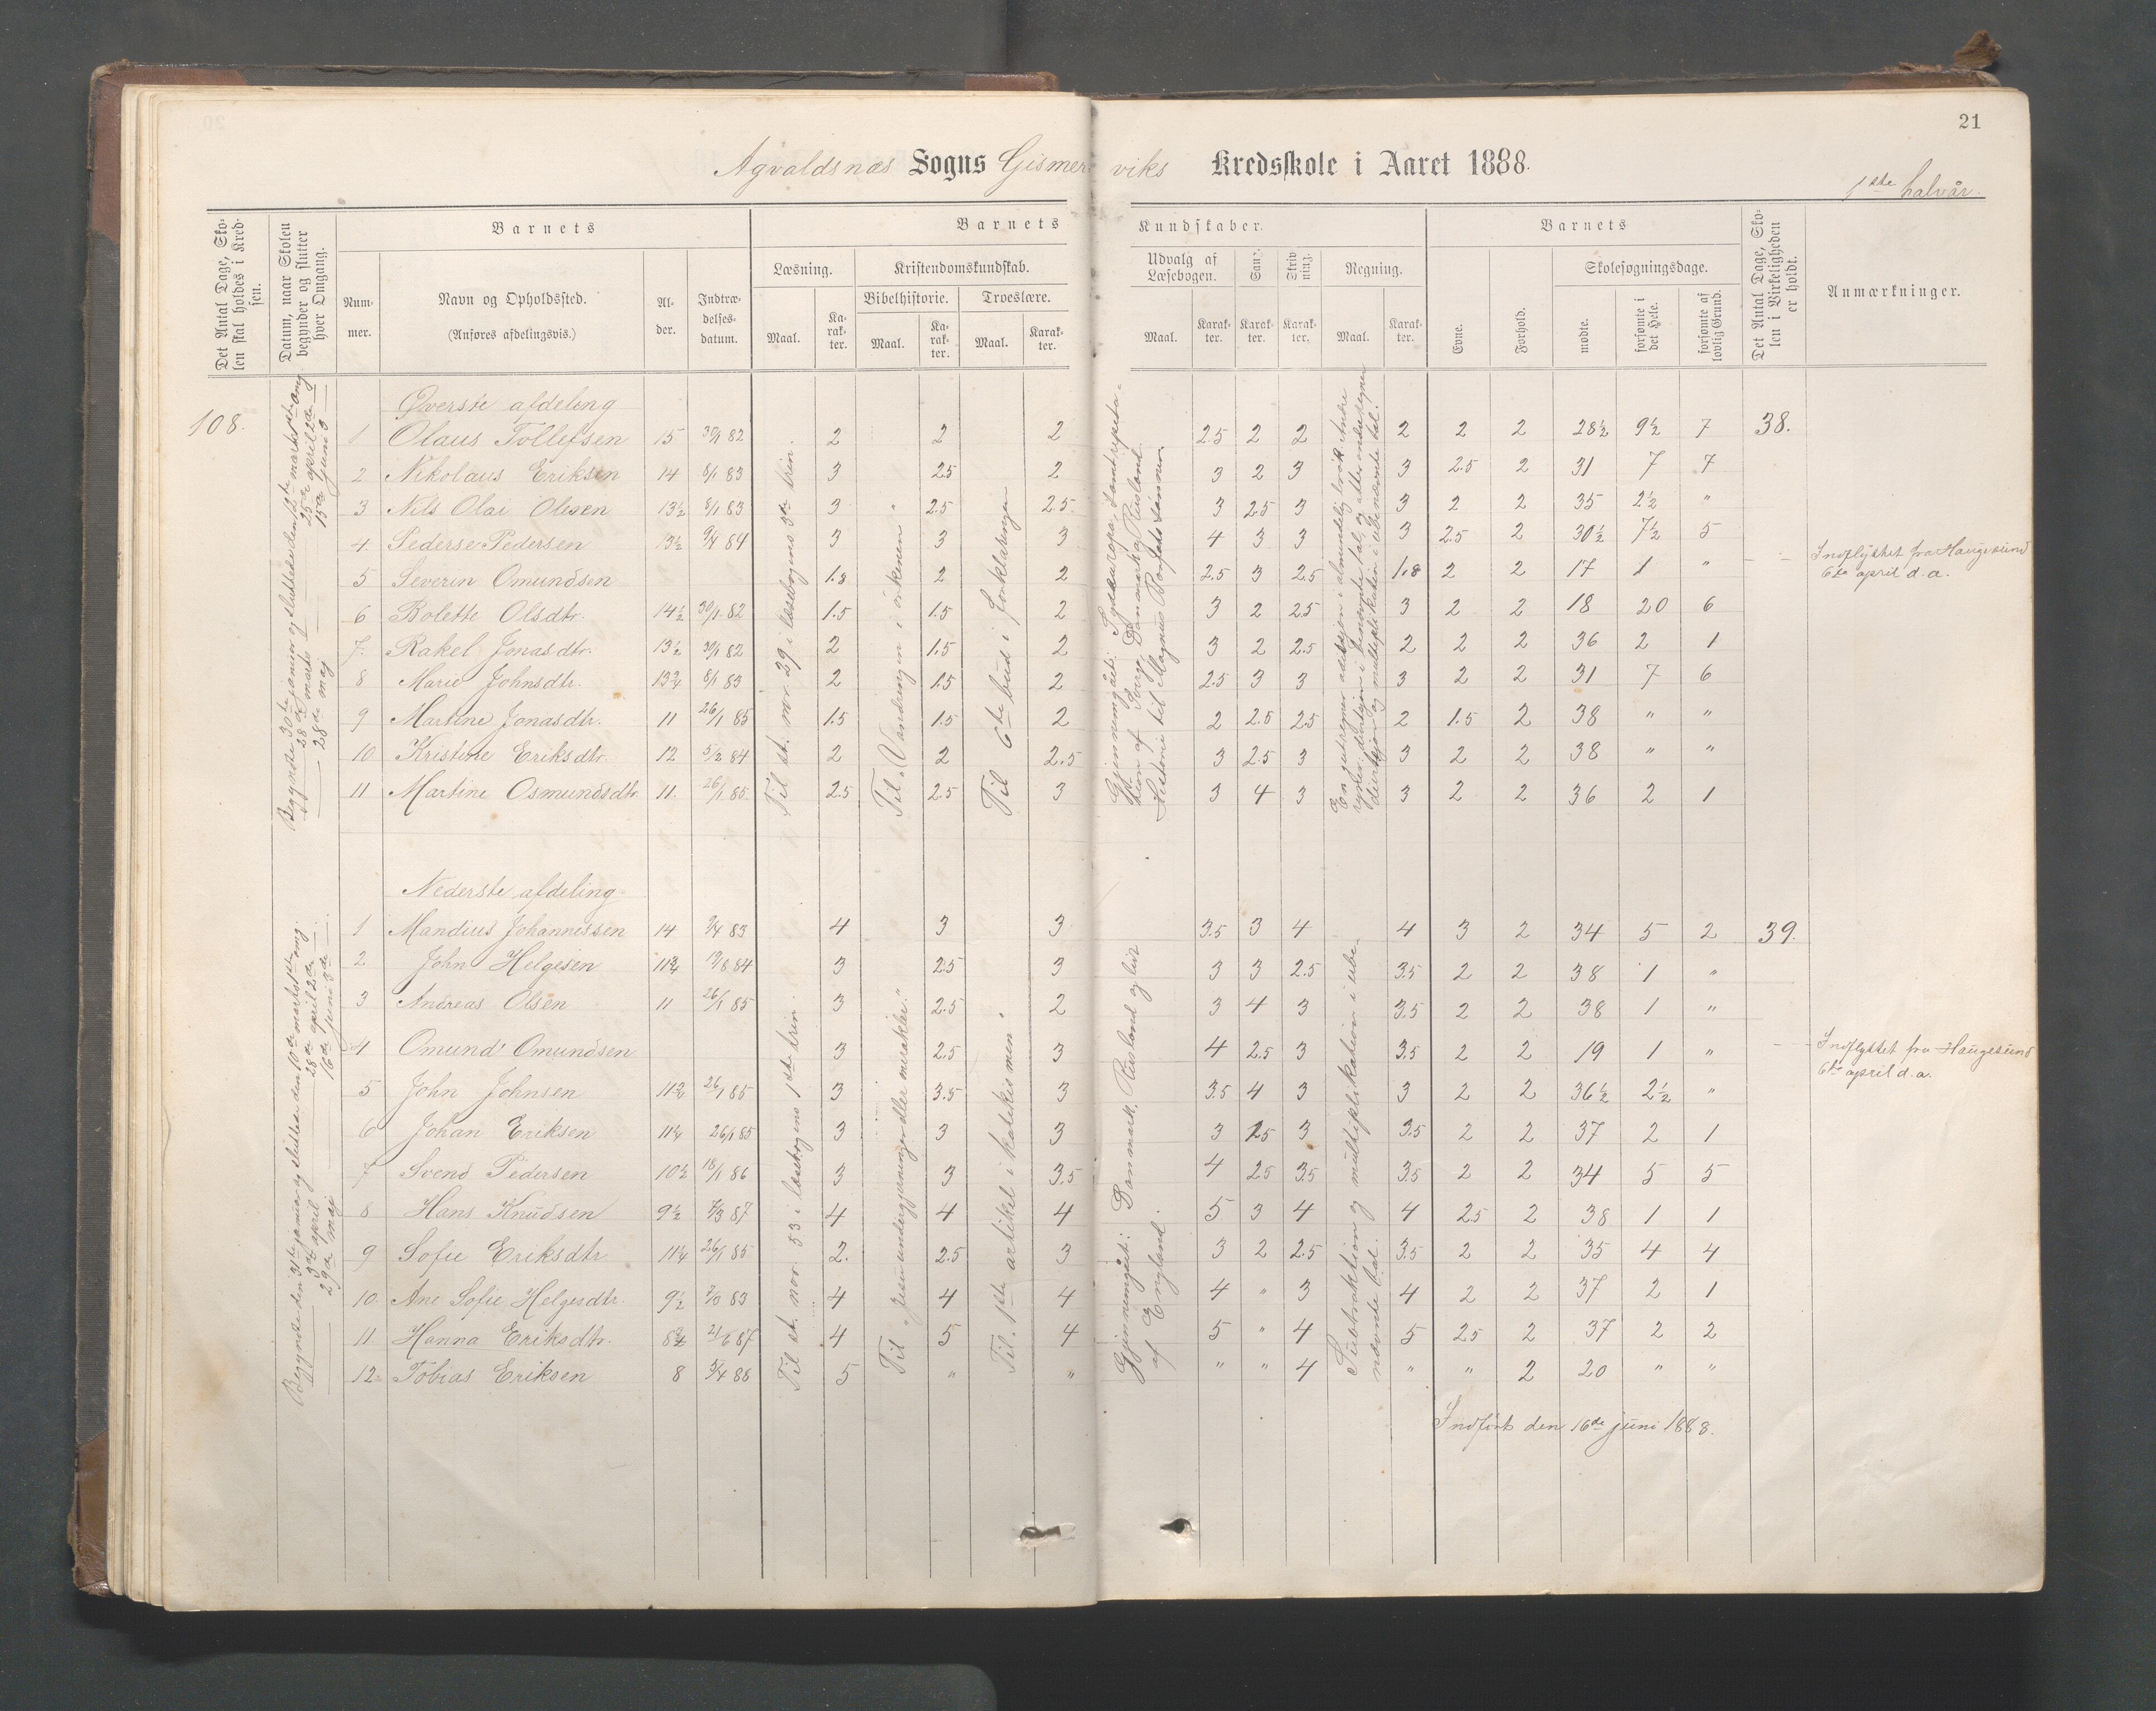 21
Agvaldsnæs Sogns Gismerviks Kredsskole i Aaret 1888.
1ste halvår.
Det Antal Dage, Skolen skal holdes i Kredsen.
Datum, naar Skolen begynder og slutter hver Omgang.
Barnets
Nummer.
Navn og Opholdssted.
(Anføres afdelingsvis.)
Alder.
Indtrædelsesdatum.
Barnets Kundskaber.
Læsning.
Maal.
Karakter.
Kristendomskundskab.
Bibelhistorie.
Maal.
Karakter.
Troeslære.
Maal.
Karakter.
Udvalg af Læsebogen.
Maal.
Karakter.
Sang.
Karakter.
Skrivning.
Karakter.
Regning.
Maal.
Karakter.
Barnets
Evne.
Forhold.
Skolesøgningsdage.
mødte.
forsømte i det Hele.
forsømte af lovlig Grund.
Det Antal Dage, Skolen i Virkeligheden er holdt.
Anmærkninger.
108.
Øverste afdeling
1 Olaus Tollefsen 15 30/1 82 2 2 2 2.5 2 2 2 2 2 28½ 9½ 7 38.
2 Nikolaus Eriksen 14 8/1 83 3 2.5 2 3 2 3 3 2.5 2 31 7 7
3 Nils Olai Olisen 13½ 8/1 83 3 2.5 2.5 3 2.5 3 3 2 2 35 2½ "
4. Pederse Pedersen 13½ 9/4 84 3 3 3 4 3 3 3 2.5 2 30½ 7½ 5
5 Severin Omundsen 1.8 2 2 2.5 3 2.5 1.8 2 2 17 1 " Indflyttet fra Haugesund
6te april d.a.
6 Bolette Olsdtr. 14½ 30/1 82 1.5 1.5 2 3 2 2.5 3 2 2 18 20 6
7. Rakel Jonasdtr. 13½ 30/1 82 2 1.5 2 3 2 2.5 2 2 2 36 2 1
8 Marie Johnsdtr. 13¾ 8/1 83 2 1.5 2 2.5 3 3 3 2 2 31 7 6
9 Martine Jonasdtr. 11 26/1 85 1.5 1.5 2 2 2.5 2.5 2 1.5 2 38 " "
10 Kristine Eriksdtr. 12 5/2 84 2 2 2.5 3 2.5 3 3 2 2 38 " "
11 Martine Osmundsdtr. 11. 26/1 85. 2.5 2.5 3 3 4 3 3 2 2 36 2 1
Begyndte 30te januar og sluttede den 12te marts 1ste omg.
28de marts 25de april 2de
28de maj 15de juni 3
Til st. nor 29 i læsebogens 3de trin.
Til "Vandringen i örkenen"
Til 6te bud i forklaringen
Gjennemgået: Sydeuropa, samt repetation af Sverge, Danmark og Rusland.
Historie til Magnus Barfots sønner.
Nederste afdeling
1 Mandius Johannissen 14 9/4 83 4 3 3 3.5 3 4 4 3 2 34 5 2 39.
2 John Helgesen 11¾ 19/8 84 3 2.5 3 3 3 2.5 3.5 2 2 38 1 "
3 Andreas Olsen 11 26/1 85 3 2.5 2 3 4 3 3.5 2 2 38 1 "
4 Omund Omundsen 3 2.5 3 4 2.5 3 3.5 2 2 19 1 " Indflyttet fra Haugesund
6te april d.a.
5 John Johnsen 26/1 85 3 3.5 3 3.5 4 3 3 2 2 36½ 2½ "
6 Johan Eriksen 11¼ 26/1 85 3 3 3 3 2.5 3 3.5 2 2 37 2 1
7 Svend Pedersen 10½ 18/1 86 3 3 3.5 4 2.5 3.5 3.5 2 2 34 5 5
8 Hans Knudsen 9½ 4 4 4 5 3 4 4 2.5 2 38 1 1
9 Sofie Eriksdtr 11¼ 26/1 85 2. 2.5 3 3 2 2.5 3.5 2 2 35 4 4
10. Ane Sofie Helgesdtr. 9½ 4 4 4 4 " 3 4 2 2 37 2 1
11. Hanna Eriksdtr. 8¾ 21/6 87 4 5 4 5 " 4 5 2.5 2 37 2 2
12. Tobias Eriksen 8 5/4 88 5 " " " " 4 " " 2 20 " "
Begyndte den 31te januar og sluttede den 10de marts 1ste omg.
3de april 28de april 2de
29de maj 16de juni 3de
Til st. nor. 53 i læsebogens 1ste trin.
Til "Jesu undergjerninger eller mirakler."
Til 1ste artikel i katekismen"
Gjennemgået: Danmark, Rusland og lidt
af England.
Subtraktion og multiplikation i ubenævnte tal.
Indført den 16de juni 1888.